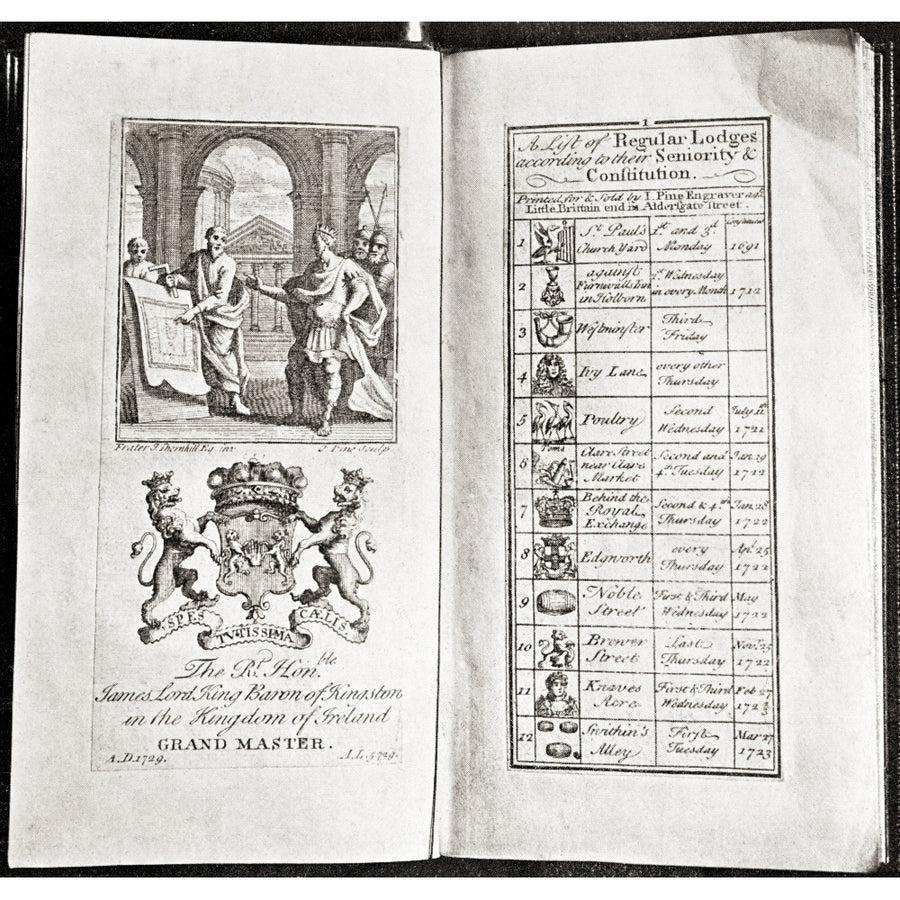 Frater J. Thornhill Eq. inv. J. Pine Sculp.
SPES TVTISSIMA CÆLIS
The Rt. Honble.
James Lord King Baron of Kingston
in the Kingdom of Ireland
GRAND MASTER.
A.D. 1729. A.L. 5729.
1
A List of Regular Lodges
according to their Seniority &
Constitution.
Printed for & Sold by I. Pine Engraver agt.
Little Brittain end in Aldersgate Street.
Constituted
1 St. Paul's 1st. and 3d.
Church Yard Monday 1691
2 against 1st. Wednesday
Furnivalls Inn in every Month 1712
in Holborn
3 Westminster Third
Friday
4 Ivy Lane every other
Thursday
5 Poultry Second July 11th
Wednesday 1721
Toms
6 Clare Street Second and Jan. 19
near Clare 4th Tuesday 1722
Market
7 Behind the Second & 4th Jan. 28
Royal Thursday 1722
Exchange
8 Edgworth every Apl. 25
Thursday 1722
9 Noble First & Third May
Street Wednesday 1722
10 Brewer Last Novr. 25
Street Thursday 1722
11 Knaves First & Third Feb 27
Acre Wednesday
12 Swithin's First Mar 27
Alley Tuesday 1723